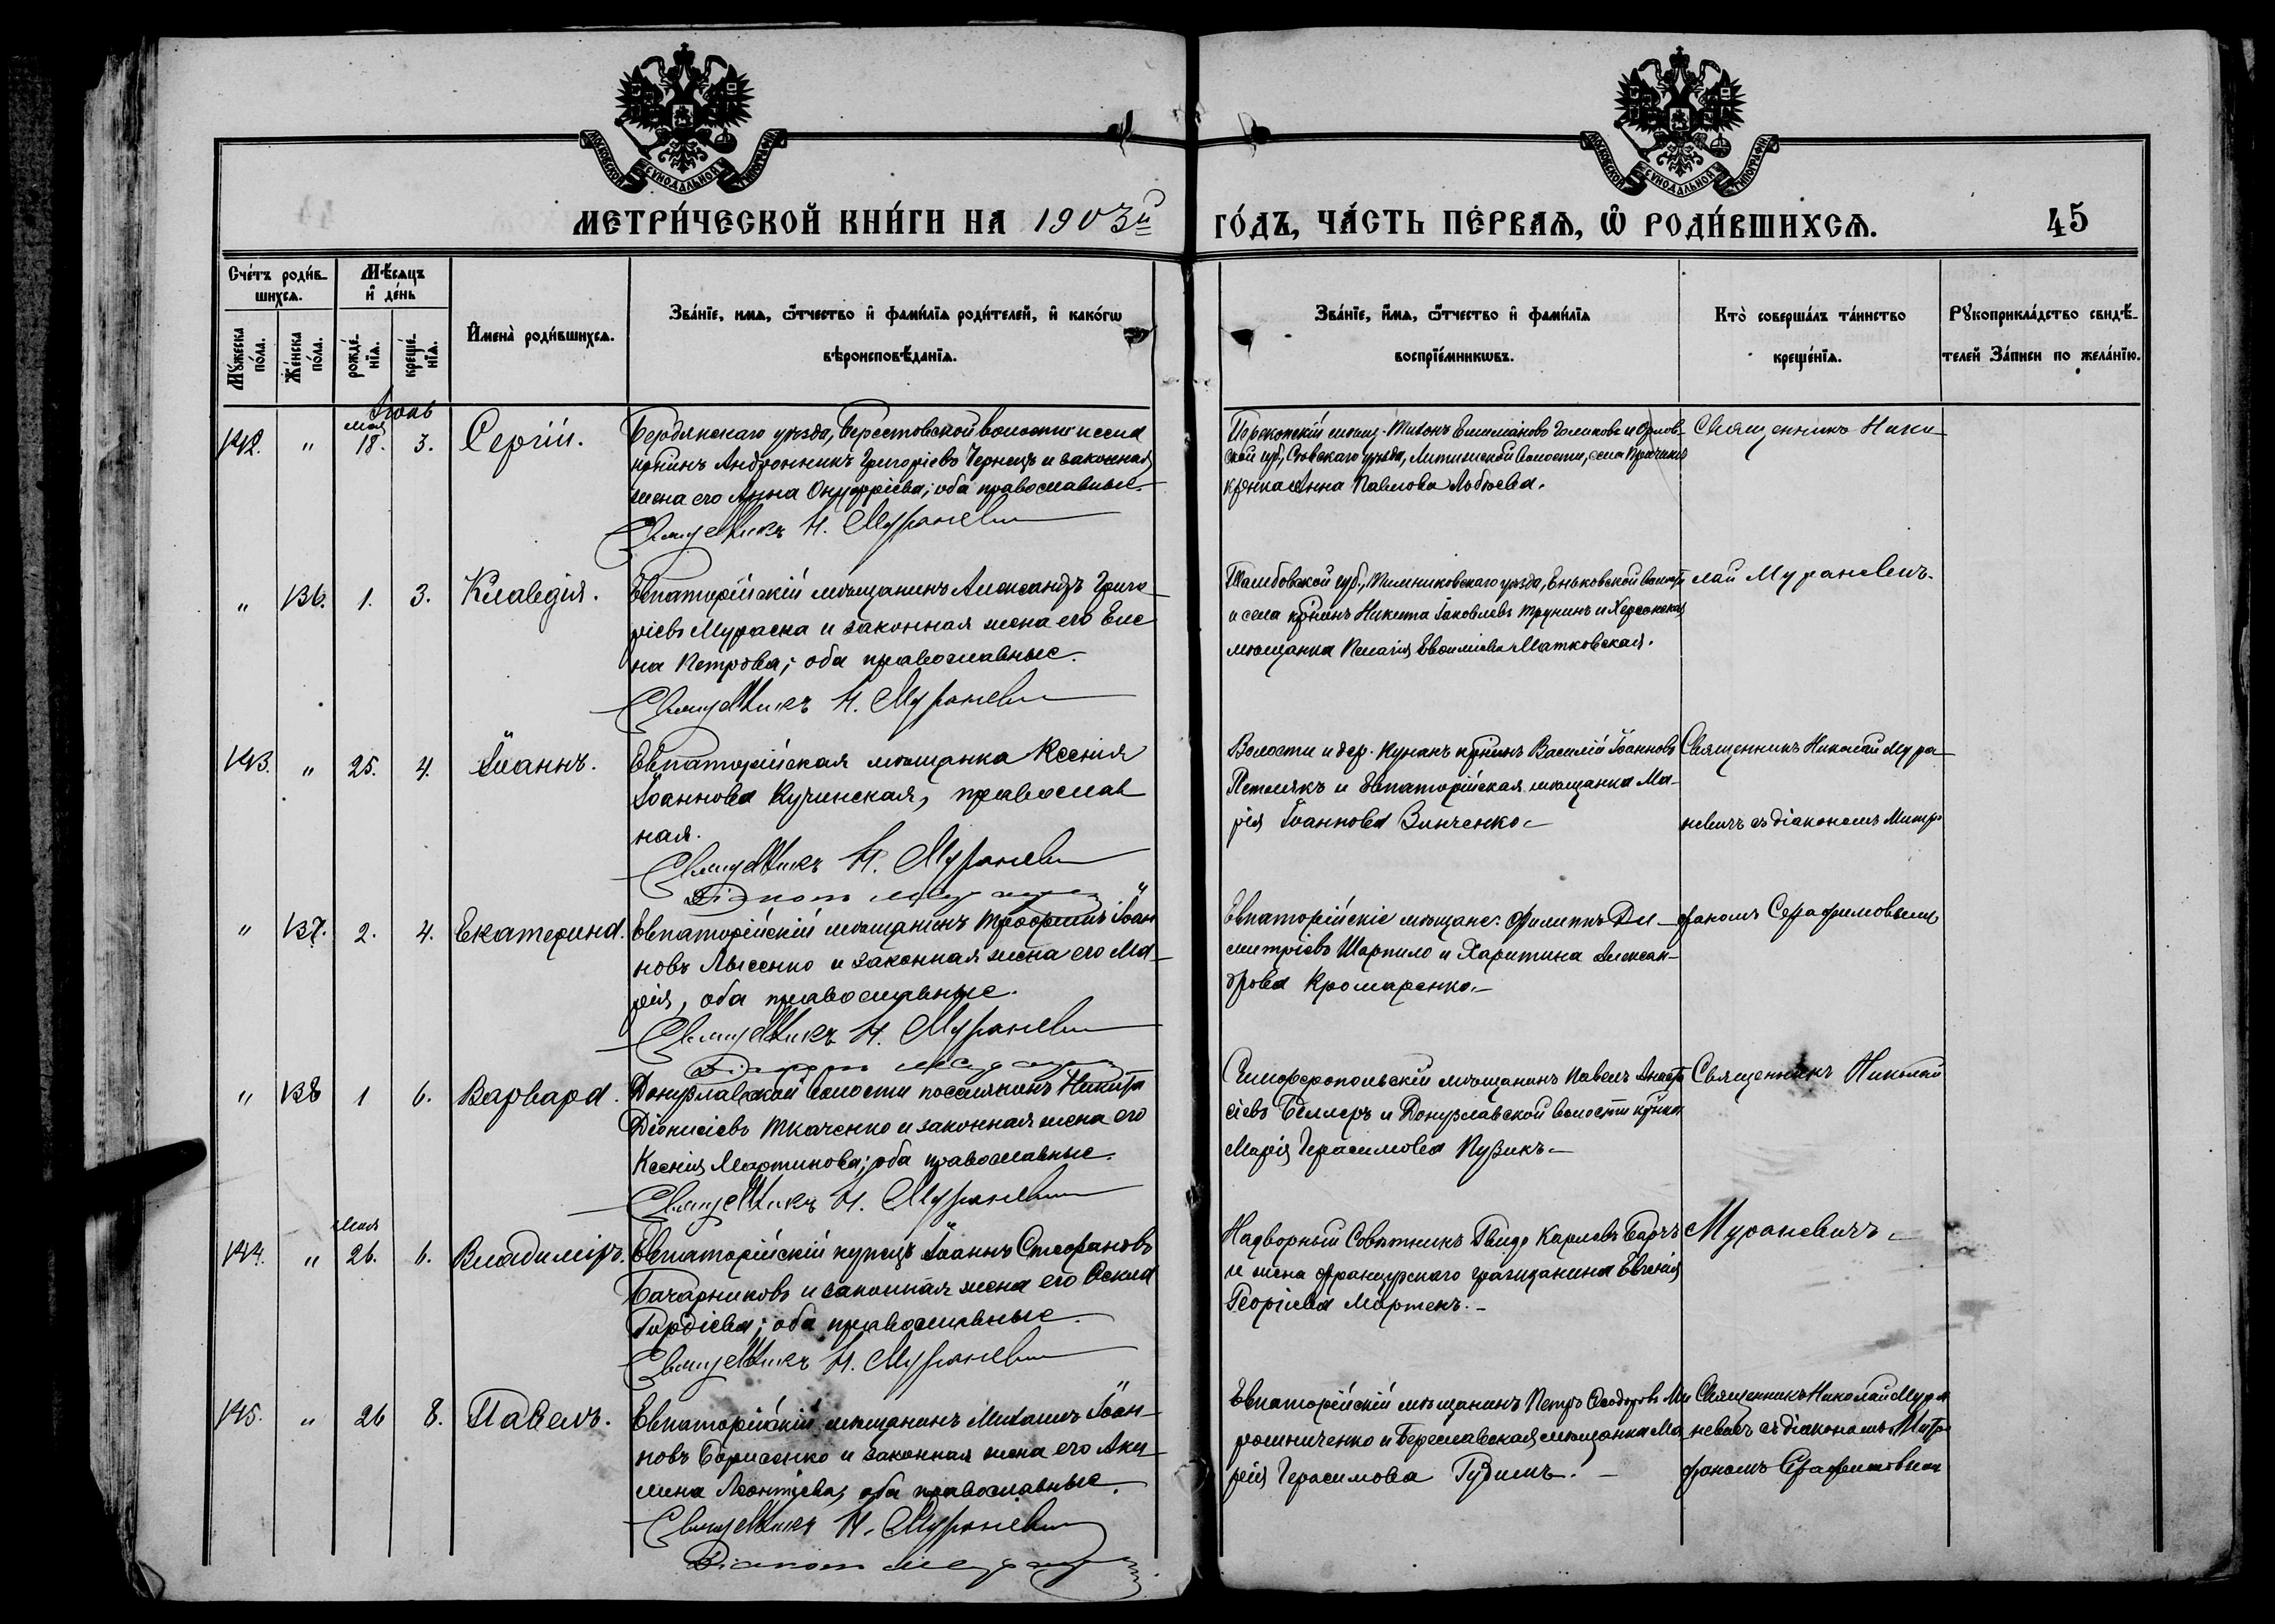 МОСКОВСКОЙ СѴНОДАЛЬНОЙ ТИПОГРАФІИ
МОСКОВСКОЙ СѴНОДАЛЬНОЙ ТИПОГРАФІИ
МЕТРИ́ЧЕСКОЙ КНИ́ГИ НА 1903й
ГО́ДЪ, ЧА́СТЬ ПЕ́РВАѦ, Ѿ РОДИ́ВШИХСѦ.
45
Сче́тъ роди́в-
шихсѧ.
Мꙋ́жеска по́ла.
Же́нска по́ла.
Мѣ́сѧцъ
и҆ де́нь
рожде́-
нїѧ.
креще́-
нїѧ.
И҆мена̀ роди́вшихсѧ.
Зва́нїе, имѧ, ѻ҆́тчество и҆ фами́лїѧ роди́телей, и҆ како́гѡ
вѣроисповѣ́данїѧ.
Зва́нїе, и҆́мѧ, ѻ҆́тчество и҆ фами́лїѧ
воспрїе́мникѡвъ.
Кто̀ соверша́лъ та́инство
креще́нїѧ.
Рꙋкоприкла́дство свидѣ́-
телей за́писи по жела́нїю.
Іюнь
мая
142. " 18. 3. Сергій.
Бердянскаго уѣзда, Берестовской волости и села
крнинъ Андронникъ Григоріевъ Чернецъ и законная
жена его Анна Онуфріева; оба православные.
Священникъ Н. Мураневич
Перекопскій мѣщ. Тихонъ Голиковъ и Орлов-
ской губ., Сѣвскаго уѣзда, волости, села
крнка Анна Павлова
Священникъ Нико-
" 136. 1. 3. Клавдія.
Евпаторійскій мѣщанинъ Александръ Григо-
ріевъ Мураска и законная жена его Еле
на Петрова; оба православные.
Священникъ Н. Мураневич
Тамбовской губ., Темниковскаго уѣзда, Еньковской волости
и села крнинъ Никита Іаковлевъ Трунинъ и Херсонская
мѣщанка Пелагія Матковская.
лай Мураневичъ.
143. " 25. 4. Іоаннъ.
Евпаторійская мѣщанка Ксенія
Іоаннова Кучинская, православ
ная.
Священникъ Н. Мураневич
Діакон
Волости и дер. Кунанъ крнинъ Василій Іоанновъ
Петлякъ и Евпаторійская мѣщанка Ма-
рія Іоаннова Винченко.
Священникъ Николай Мура-
невичъ съ діакономъ Митро
" 137. 2. 4. Екатерина.
Евпаторійскій мѣщанинъ Трофимъ Іоан
новъ Лысенко и законная жена его Ма-
рія, оба православные.
Священникъ Н. Мураневич
Діакон
Евпаторійскіе мѣщане: Филиппъ Ди-
митріевъ Шарпило и Харитина Алексан-
дрова Кромаренко.
фаномъ Серафимовымъ
" 138 1 6. Варвара.
Донузлавской волости поселянинъ Никита
Діонисіевъ Ткаченко и законная жена его
Ксенія Мартинова; оба православные.
Священникъ Н. Мураневич
Симферопольскій мѣщанинъ Павелъ Анаста
сіевъ Беллеръ и Донузлавской волости крнка
Марія Герасимова Пузикъ.
Священникъ Николай
мая
144. " 26. 6. Владиміръ.
Евпаторійскій купецъ Іоаннъ Стефановъ
Бачарниковъ и законная жена его Ѳекла
Гордіева; оба православные.
Священникъ Н. Мураневич
Надворный Совѣтникъ Гвидо Карловъ Барчъ
и жена французскаго гражданина Евгенія
Георгіева Мартенъ.
Мураневичъ.
145. " 26 8. Павелъ.
Евпаторійскій мѣщанинъ Михаилъ Іоан-
новъ Борисенко и законная жена его Аки-
лина Леонтіева, оба православные.
Священникъ Н. Мураневич
Діакон
Евпаторійскій мѣщанинъ Петръ Ѳеодоровъ Ми
рошниченко и Бериславская мѣщанка Ма
рія Герасимова Гузимъ.
Священникъ Николай Мура
невичъ съ діакономъ Митро
фаномъ Серафимовымъ